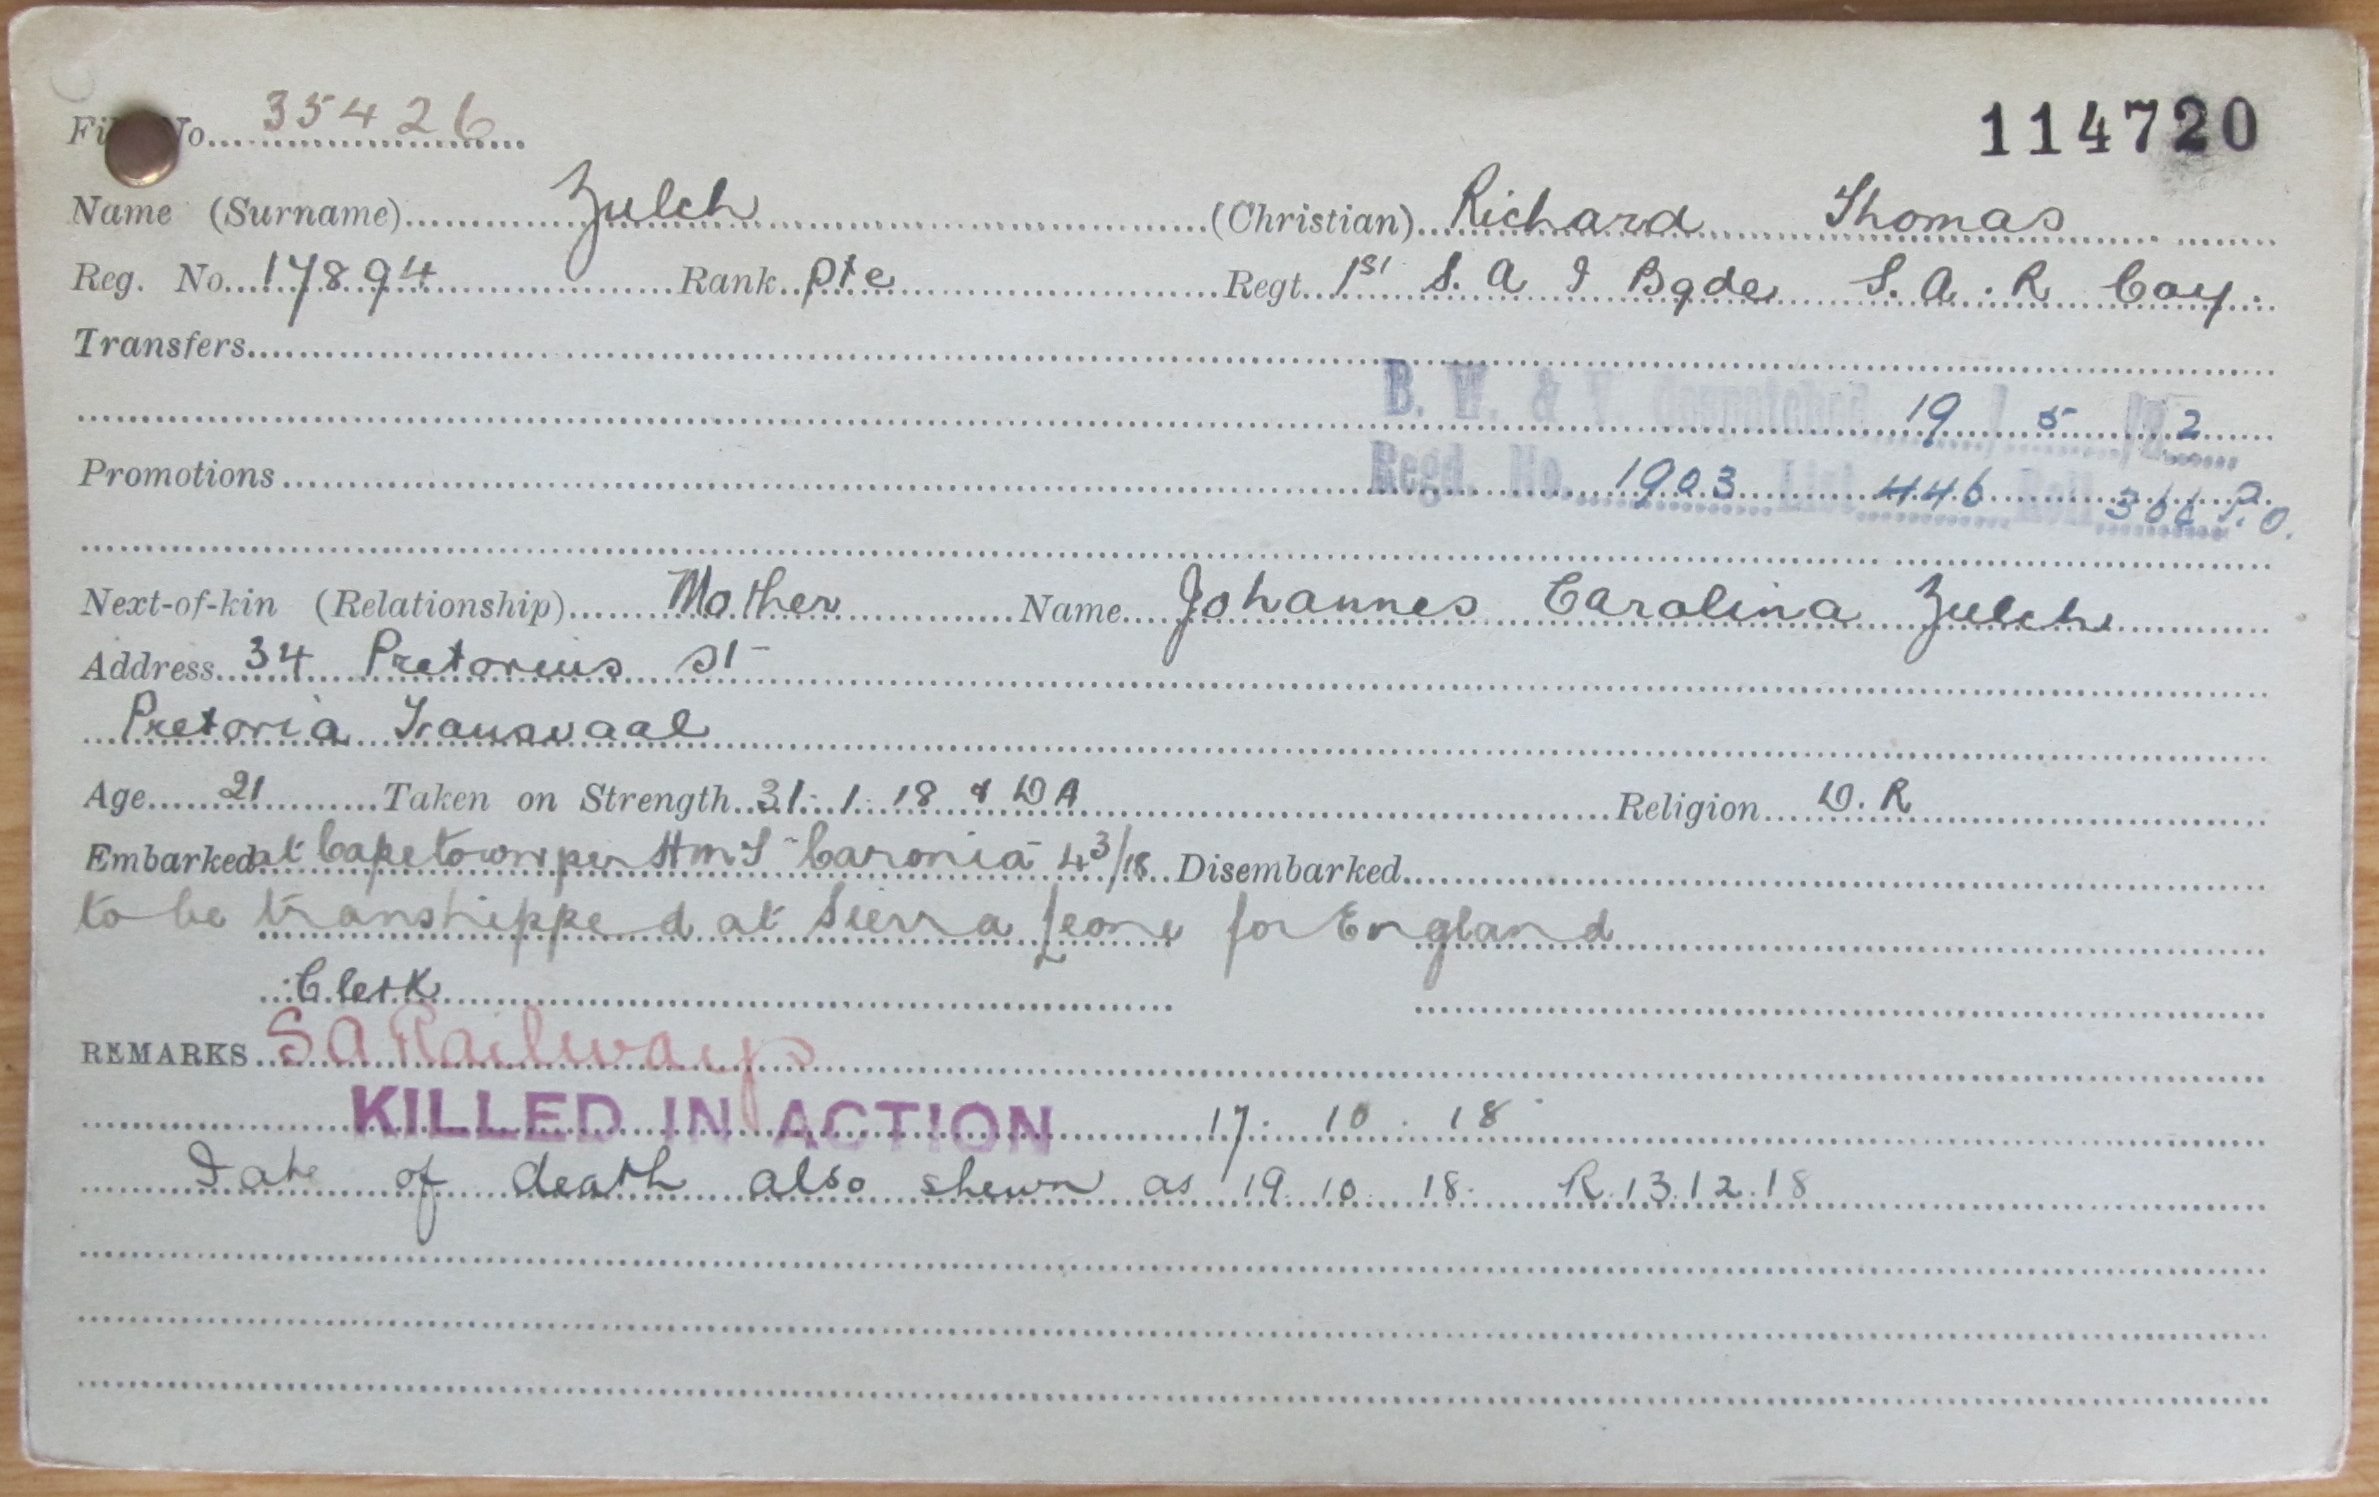 File No. 35426
114720
Name (Surname) Zulch (Christian) Richard Thomas
Reg. No. 17894 Rank pte Regt. 1st S. A I Bgde S. A. R Coy.
Transfers
B. W. & V. Despatched 19 / 5 / 192
Promotions Regd. No. 1903 List 446 Roll 366 P.O.
Next-of-kin (Relationship) Mother Name Johannes Carolina Zulch
Address 34 Pretorius St
Pretoria Transvaal
Age 21 Taken on Strength 31. 1. 18 & DA Religion D. R
Embarked at Capetown per HMS "Caronia" 4 3/18 Disembarked
to be transhipped at Sierra Leone for England
Clerk
REMARKS S A Railways
KILLED IN ACTION 17. 10. 18
Date of death also shewn as 19. 10. 18. R. 13. 12. 18